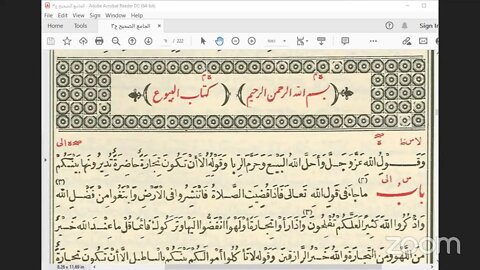 الجامع الصحيح ج٣ - Adobe Acrobat Reader DC (64-bit)
الجامع الصحيح ج٣ ×
Sign In
/ 222
( بسم الله الرحمن الرحيم ) ( كتاب البيوع )
وقول الله عز وجل وأحل الله البيع وحرم الربا وقوله إلا أن تكون تجارة حاضرة تديرونها بينكم
باب ما جاء في قول الله تعالى فإذا قضيت الصلاة فانتشروا في الأرض وابتغوا من فضل الله
واذكروا الله كثيرا لعلكم تفلحون وإذا رأوا تجارة أو لهوا انفضوا إليها وتركوك قائما قل ما عند الله خير
من اللهو ومن التجارة والله خير الرازقين وقوله لا تأكلوا أموالكم بينكم بالباطل إلا أن تكون تجارة
8.26 x 11.69 in
zoom